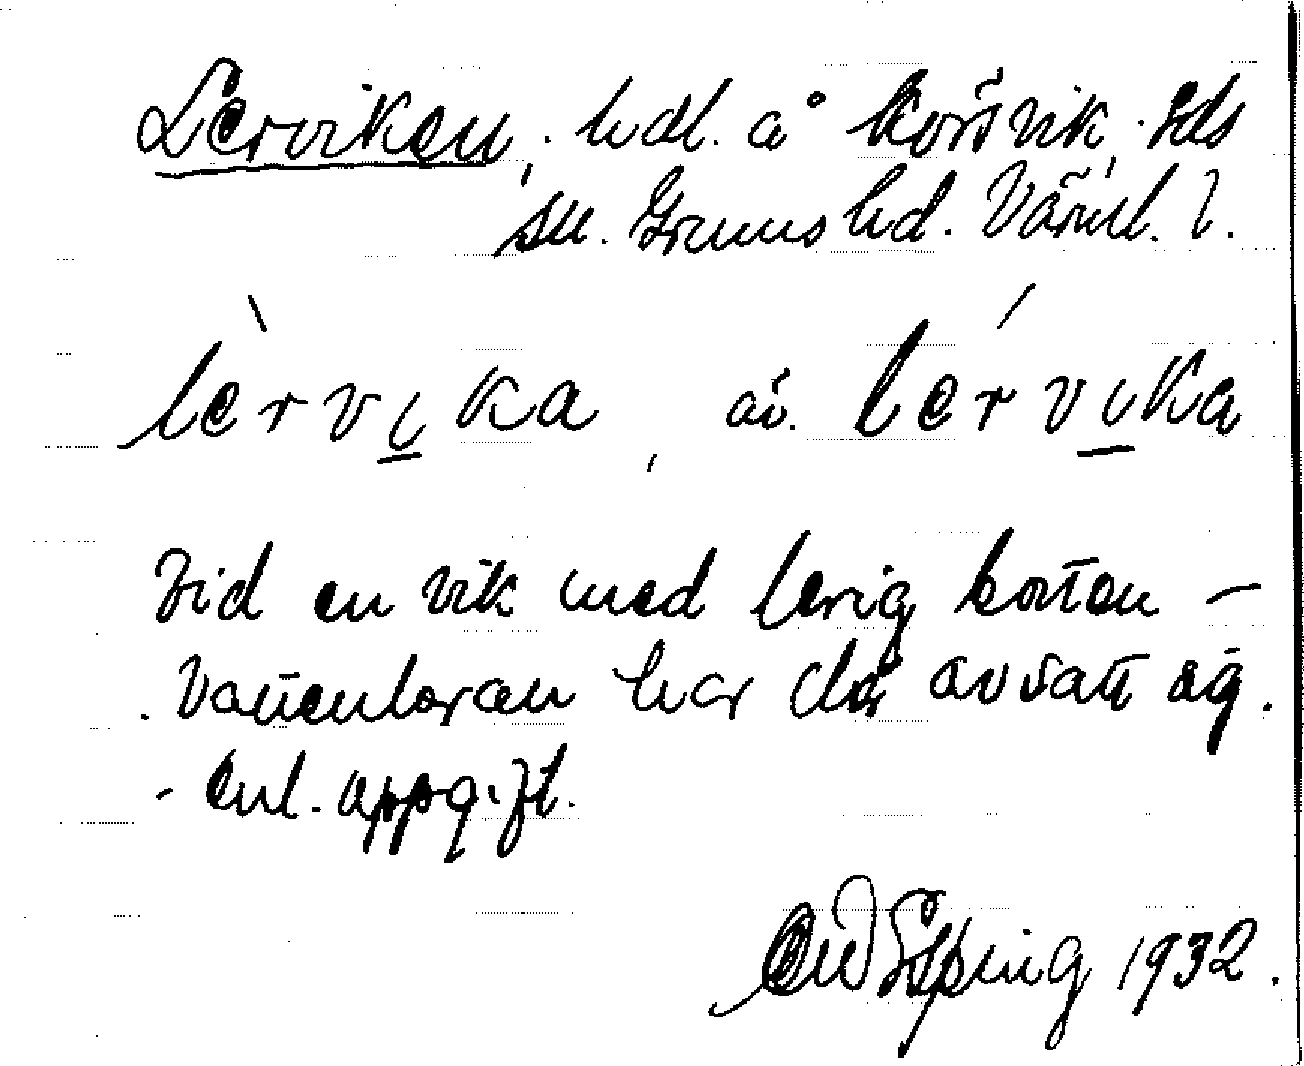 Lerviken, hdl. å Korsvik. Eds
sn. Grums hd. Värml. l.
lèrvika, äv. lérvika
Vid en vik med lerig botten –
Vattenleran har där avsatt sig.
- Enl. uppgift.
1932.